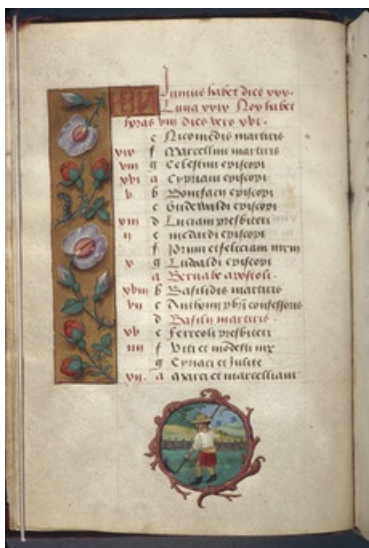 Junius habet dies xxx.
KL Luna xxix Nox habet
horas viii dies vero xvi.
e Nicomedis martiris
xix f Marcellini martiris
viii g Celestini episcopi
xvi a Cypriani episcopi
v b Bonifacii episcopi
c Gudewaldi episcopi
xiii d Luciani presbiteri
ii e medardi episcopi
f Primi et feliciani
g episcopi
a Bernabe apostoli.
xviii b Basilidis martiris
vii c Anthonii confessoris
d Basilii martiris
xv e Ferreoli presbiteri
iiii f Viti et modesti
g Cyriaci et Julite
xii a Marci et marcelliani